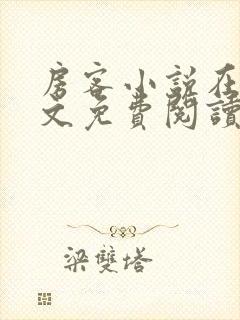 房客小说在
文免費閱讀
梁雙塔